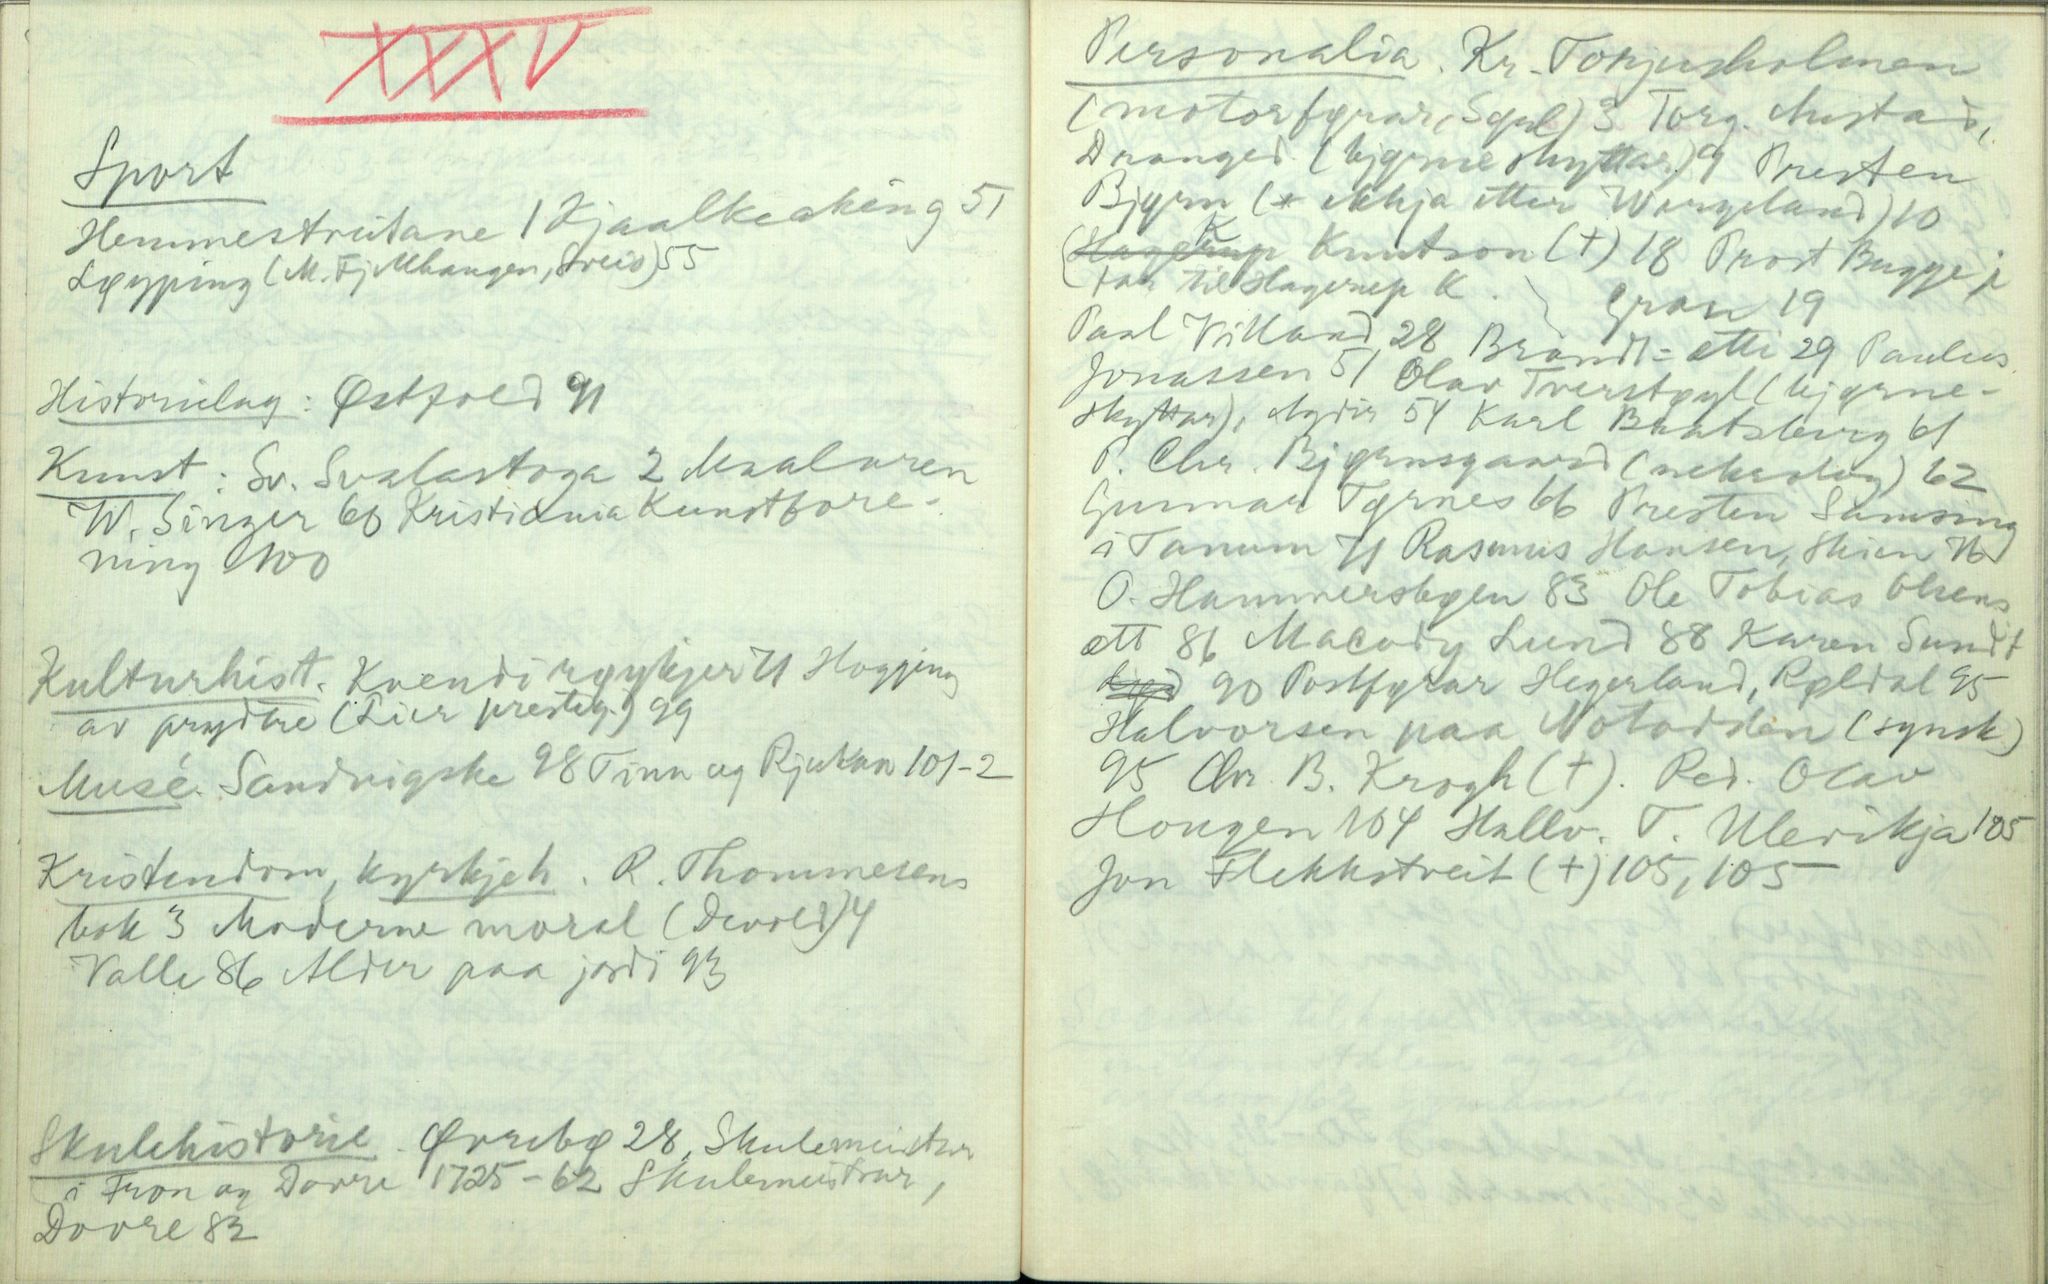 XXXV
Sport
Hemmestreitane 1 Kjaalkeaking 51
Løyping (M. Fjellhaugen, Treis) 55
Historielag: Østfold 91
Kunst: Sv. Svalastoga 2 Maalaren
W. Singer 60 Kristiania Kunstfore-
ning 100
Kulturhist. Kvendi røykjer 71 Hogging
av prydtre (Lier prestg.) 99
Musé. Sandvigske 98 Tinn og Rjukan 101-2
Kristendom, kyrkjeh. R. Thommesens
bok 3 Moderne moral (Devold) 4
Valle 86 Alder paa jordi 93
Skulehistorie. Øvrebø 28, Skulemeistrar
i Fron og Dovre 1725-62 Skulemeistrar,
Dovre 83
Personalia. Kr. Torjusholmen
(motorførar, Sgul) 3 Torg. Austad,
Dranged (bjørneskyttar) 9 Presten
Bjørn (* ekkja etter Wergeland) 10
(Hagerup K Knutson (†) 18 Prost Bugge i
(far til Hagerup K. ) Gran 19
Paal Villand 28 Brandt-ætti 29 Paulus
Jonassen 51 Olav Tverstøyl (bjørne-
skyttar), Agder 54 Karl Baatsberg 61
P. Chr. Bjørnsgaard (nekrolog) 62
Gunnar Tørnes 66 Presten Samsing
i Tanum 71 Rasmus Hansen, Skien 76
O. Hammerstøen 83 Ole Tobias Olsens
ætt 86 Macody Lund 88 Karen Sundt
90 Postførar Hegerland, Røldal 95
Halvorsen paa Notodden (synsk)
95 Chr. B. Krogh (†). Red. Olav
Hougen 104 Hallv. T. Ulevikja 105
Jon Flekkstreit (†) 105, 105